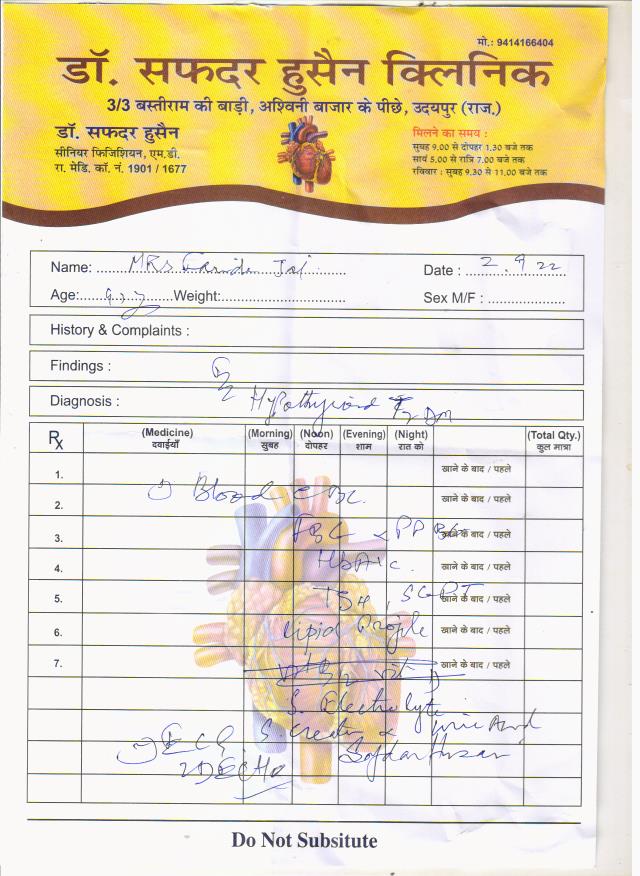 मो.: 9414166404
डॉ. सफदर हुसैन क्लिनिक
3/3 बस्तीराम की बाड़ी, अश्विनी बाजार के पीछे, उदयपुर (राज.)
डॉ. सफदर हुसैन
सीनियर फिजिशियन, एम.डी.
रा. मेडि. कॉ. नं. 1901 / 1677
मिलने का समय :
सुबह 9.00 से दोपहर 1.30 बजे तक
सायं 5.00 से रात्रि 7.00 बजे तक
रविवार : सुबह 9.30 से 11.00 बजे तक
Name: MRs
Date : 2.9.22
Age: Weight:
Sex M/F :
History & Complaints :
Findings :
Diagnosis : Hypothyroid DM
Rx (Medicine) (Morning) (Noon) (Evening) (Night) (Total Qty.)
दवाईयाँ सुबह दोपहर शाम रात को कुल मात्रा
1. खाने के बाद / पहले
2. Blood CBC खाने के बाद / पहले
3. PP खाने के बाद / पहले
4. HbA1c. खाने के बाद / पहले
5. TSH, SGPT खाने के बाद / पहले
6. Lipid Profile खाने के बाद / पहले
7. खाने के बाद / पहले
S. Electrolyte
S. Creatin & Uric Acid
ECG Safdar Husan
2D ECHO
Do Not Subsitute